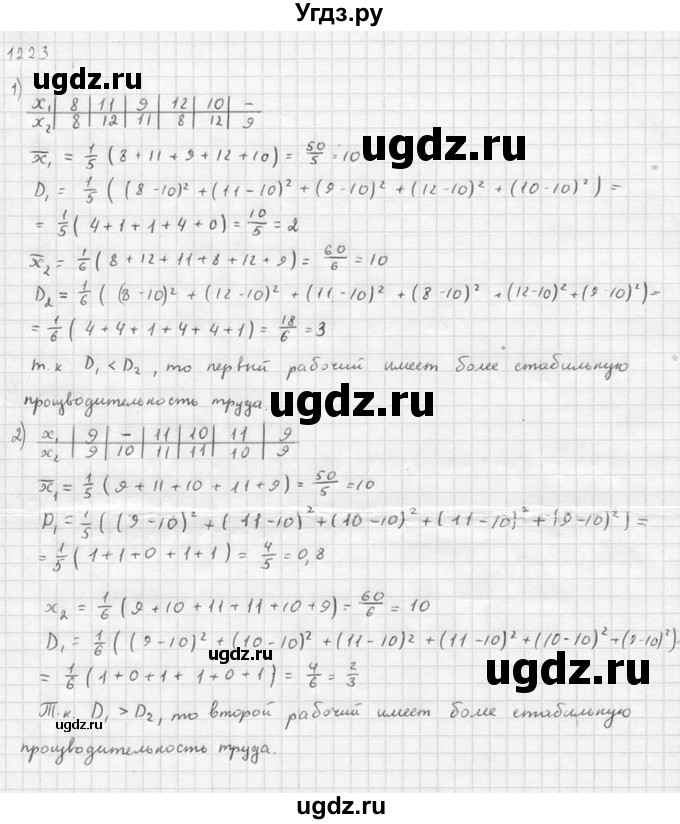 Угдз.ру
1223
ugdz.ru ugdz.ru
1) x₁ | 8 | 11 | 9 | 12 | 10 | –
x₂ | 8 | 12 | 11 | 8 | 12 | 9
x̄₁ = 1/5 (8 + 11 + 9 + 12 + 10) = 50/5 = 10
ugdz.ru
D₁ = 1/5 ((8 - 10)² + (11 - 10)² + (9 - 10)² + (12 - 10)² + (10 - 10)²) =
= 1/5 (4 + 1 + 1 + 4 + 0) = 10/5 = 2
ugdz.ru
x̄₂ = 1/6 (8 + 12 + 11 + 8 + 12 + 9) = 60/6 = 10
D₂ = 1/6 ((8 - 10)² + (12 - 10)² + (11 - 10)² + (8 - 10)² + (12 - 10)² + (9 - 10)²) =
= 1/6 (4 + 4 + 1 + 4 + 4 + 1) = 18/6 = 3
т.к D₁ < D₂, то первый рабочий имеет более стабильную
производительность труда
ugdz.ru ugdz.ru
2) x₁ | 9 | – | 11 | 10 | 11 | 9
x₂ | 9 | 10 | 11 | 11 | 10 | 9
x̄₁ = 1/5 (9 + 11 + 10 + 11 + 9) = 50/5 = 10
D₁ = 1/5 ((9 - 10)² + (11 - 10)² + (10 - 10)² + (11 - 10)² + (9 - 10)²) =
= 1/5 (1 + 1 + 0 + 1 + 1) = 4/5 = 0,8
ugdz.ru
x₂ = 1/6 (9 + 10 + 11 + 11 + 10 + 9) = 60/6 = 10
D₁ = 1/6 ((9 - 10)² + (10 - 10)² + (11 - 10)² + (11 - 10)² + (10 - 10)² + (9 - 10)²)
ugdz.ru ugdz.ru
= 1/6 (1 + 0 + 1 + 1 + 0 + 1) = 4/6 = 2/3
Т.к. D₁ > D₂, то второй рабочий имеет более стабильную
производительность труда.
ugdz.ru ugdz.ru
ugdz.ru